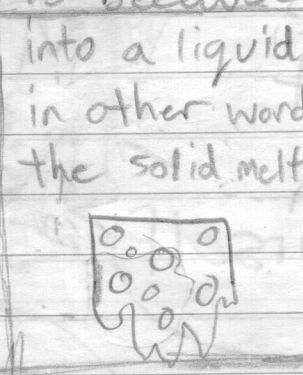 into a liquid
in other word
the solid melt